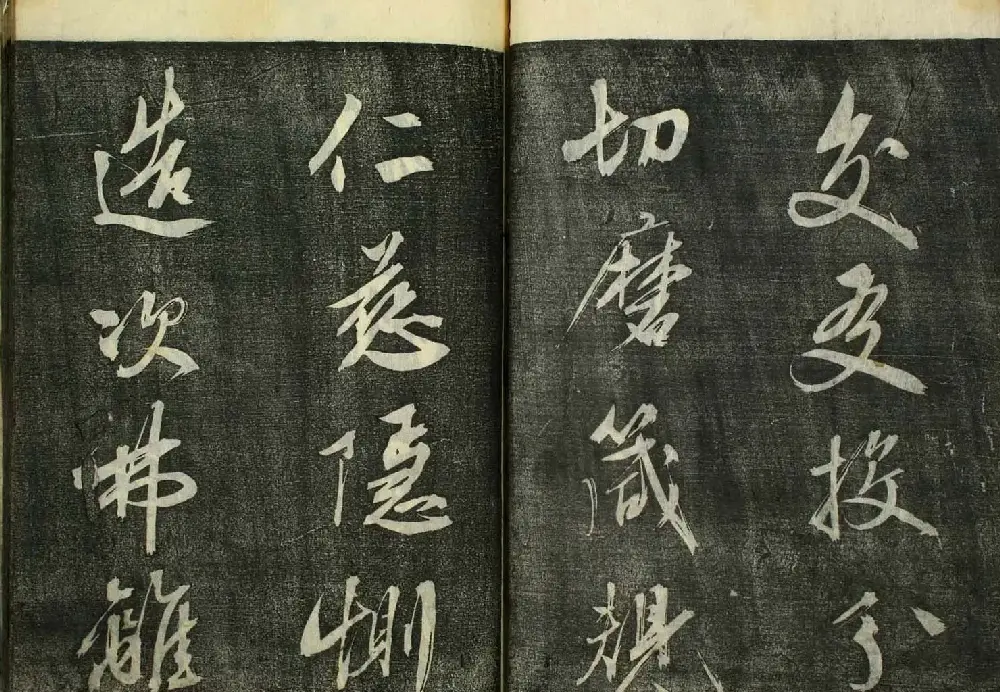 交友投分
切磨箴規
仁慈隱惻
造次弗離